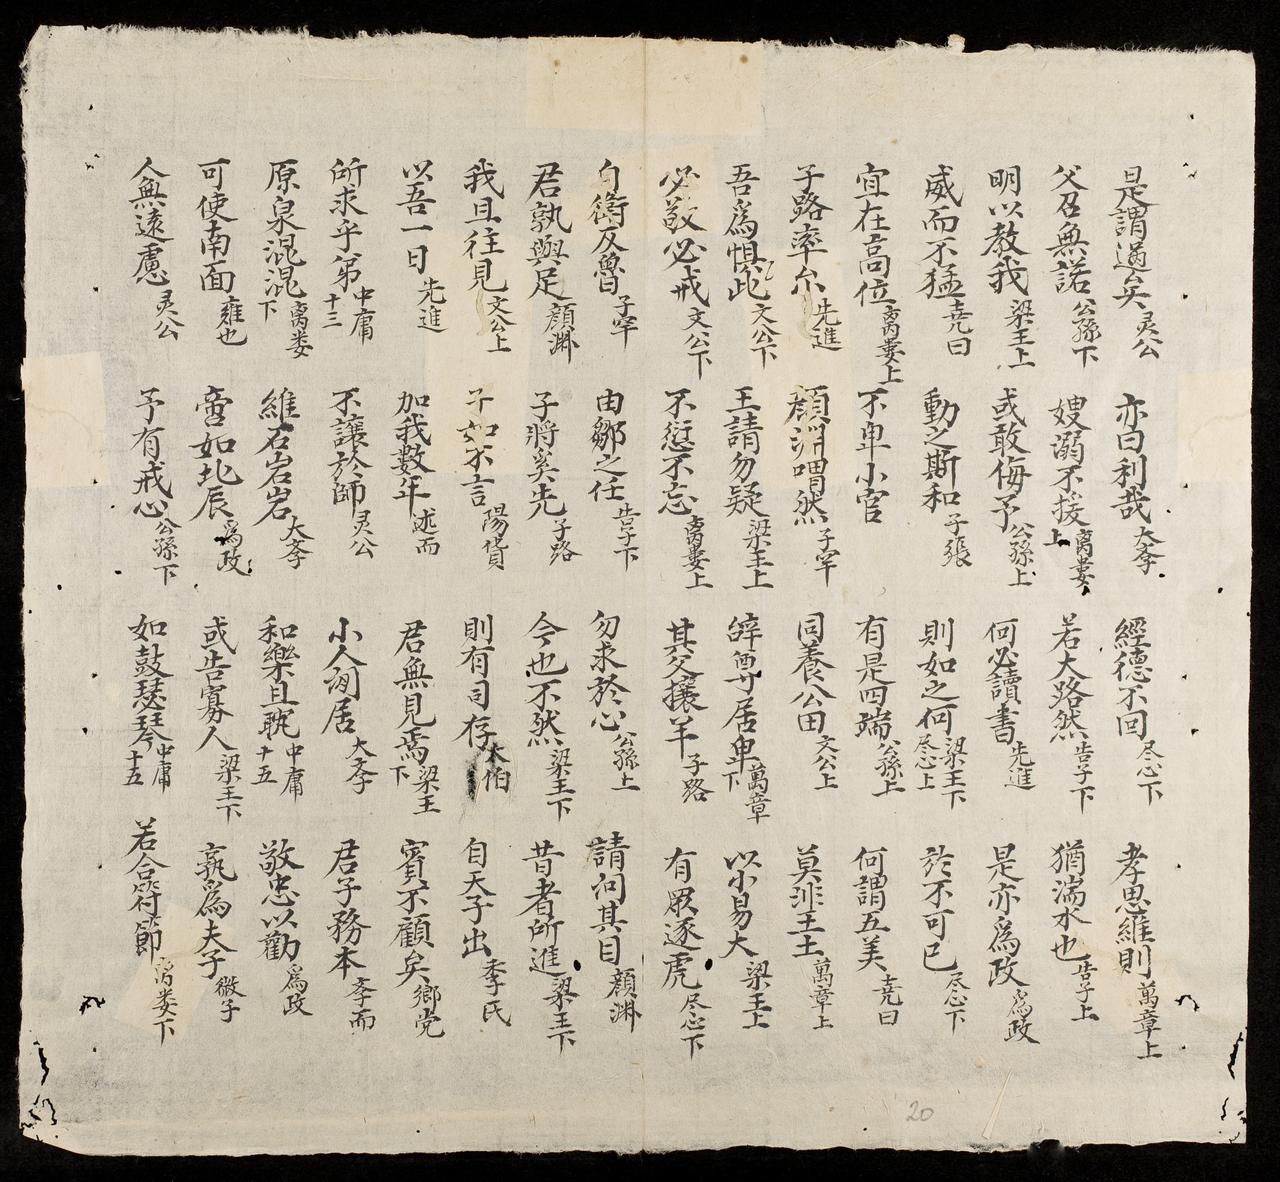 是謂過矣 灵公 亦曰利哉 大斈 經德不回 尽心下 孝思維則 萬章上
父召無諾 公孫下 嫂溺不援 离婁上 若大路然 告子下 猶湍水也 告子上
明以教我 梁王上 或敢侮予 公孫上 何必讀書 先進 是亦爲政 爲政
威而不猛 尭曰 動之斯和 子張 則如之何 梁王下 尽心上 於不可已 尽心下
宜在高位 离婁上 不卑小官 有是四端 公孫上 何謂五美 尭曰
子路率尓 先進 顔淵喟然 子罕 同養公田 文公上 莫非王土 萬章上
吾爲惧此 文公下 王請勿疑 梁王上 辞尊居卑 萬章下 以小易大 梁王上
必敬必戒 文公下 不愆不忘 离婁上 其父攘羊 子路 有衆逐虎 尽心下
自衛反魯 子罕 由鄒之任 告子下 勿求於心 公孫上 請问其目 顔渊
君孰與足 顔渊 子將奚先 子路 今也不然 梁王下 昔者所進 梁王下
我且往見 文公上 子如不言 陽貨 則有司存 太伯 自天子出 季氏
以吾一日 先進 加我數年 述而 君無見焉 梁王下 賓不顧矣 鄉党
所求乎弟 中庸十三 不讓於師 灵公 小人闲居 大斈 君子務本 斈而
原泉混混 离娄下 維石岩岩 大斈 和樂且耽 中庸十五 敬忠以勸 爲政
可使南面 雍也 譬如北辰 爲政 或告寡人 梁王下 孰爲夫子 微子
人無遠慮 灵公 予有戒心 公孫下 如鼓瑟琴 中庸十五 若合符節 离娄下
20